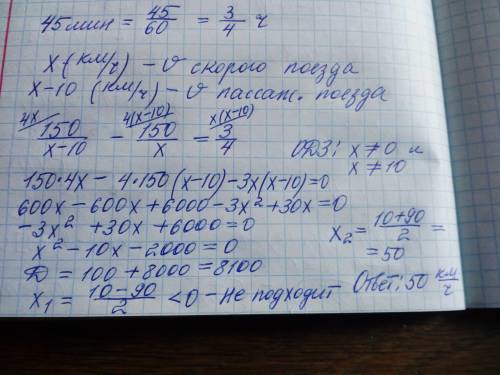 45 мин = 45/60 = 3/4 ч
x (км/ч) – v скорого поезда
x-10 (км/ч) – v пассаж. поезда
4x/ 150/(x-10) – 4(x-10)/ 150/x = x(x-10)/ 3/4
ОДЗ: x≠0 и
x≠10
150·4x – 4·150(x-10)-3x(x-10)=0
600x-600x+6000-3x²+30x=0
-3x²+30x+6000=0
x²-10x-2000=0
D=100+8000=8100
x₁=(10-90)/2 <0 - не подходит
x₂=(10+90)/2=
=50
Ответ: 50 км/ч